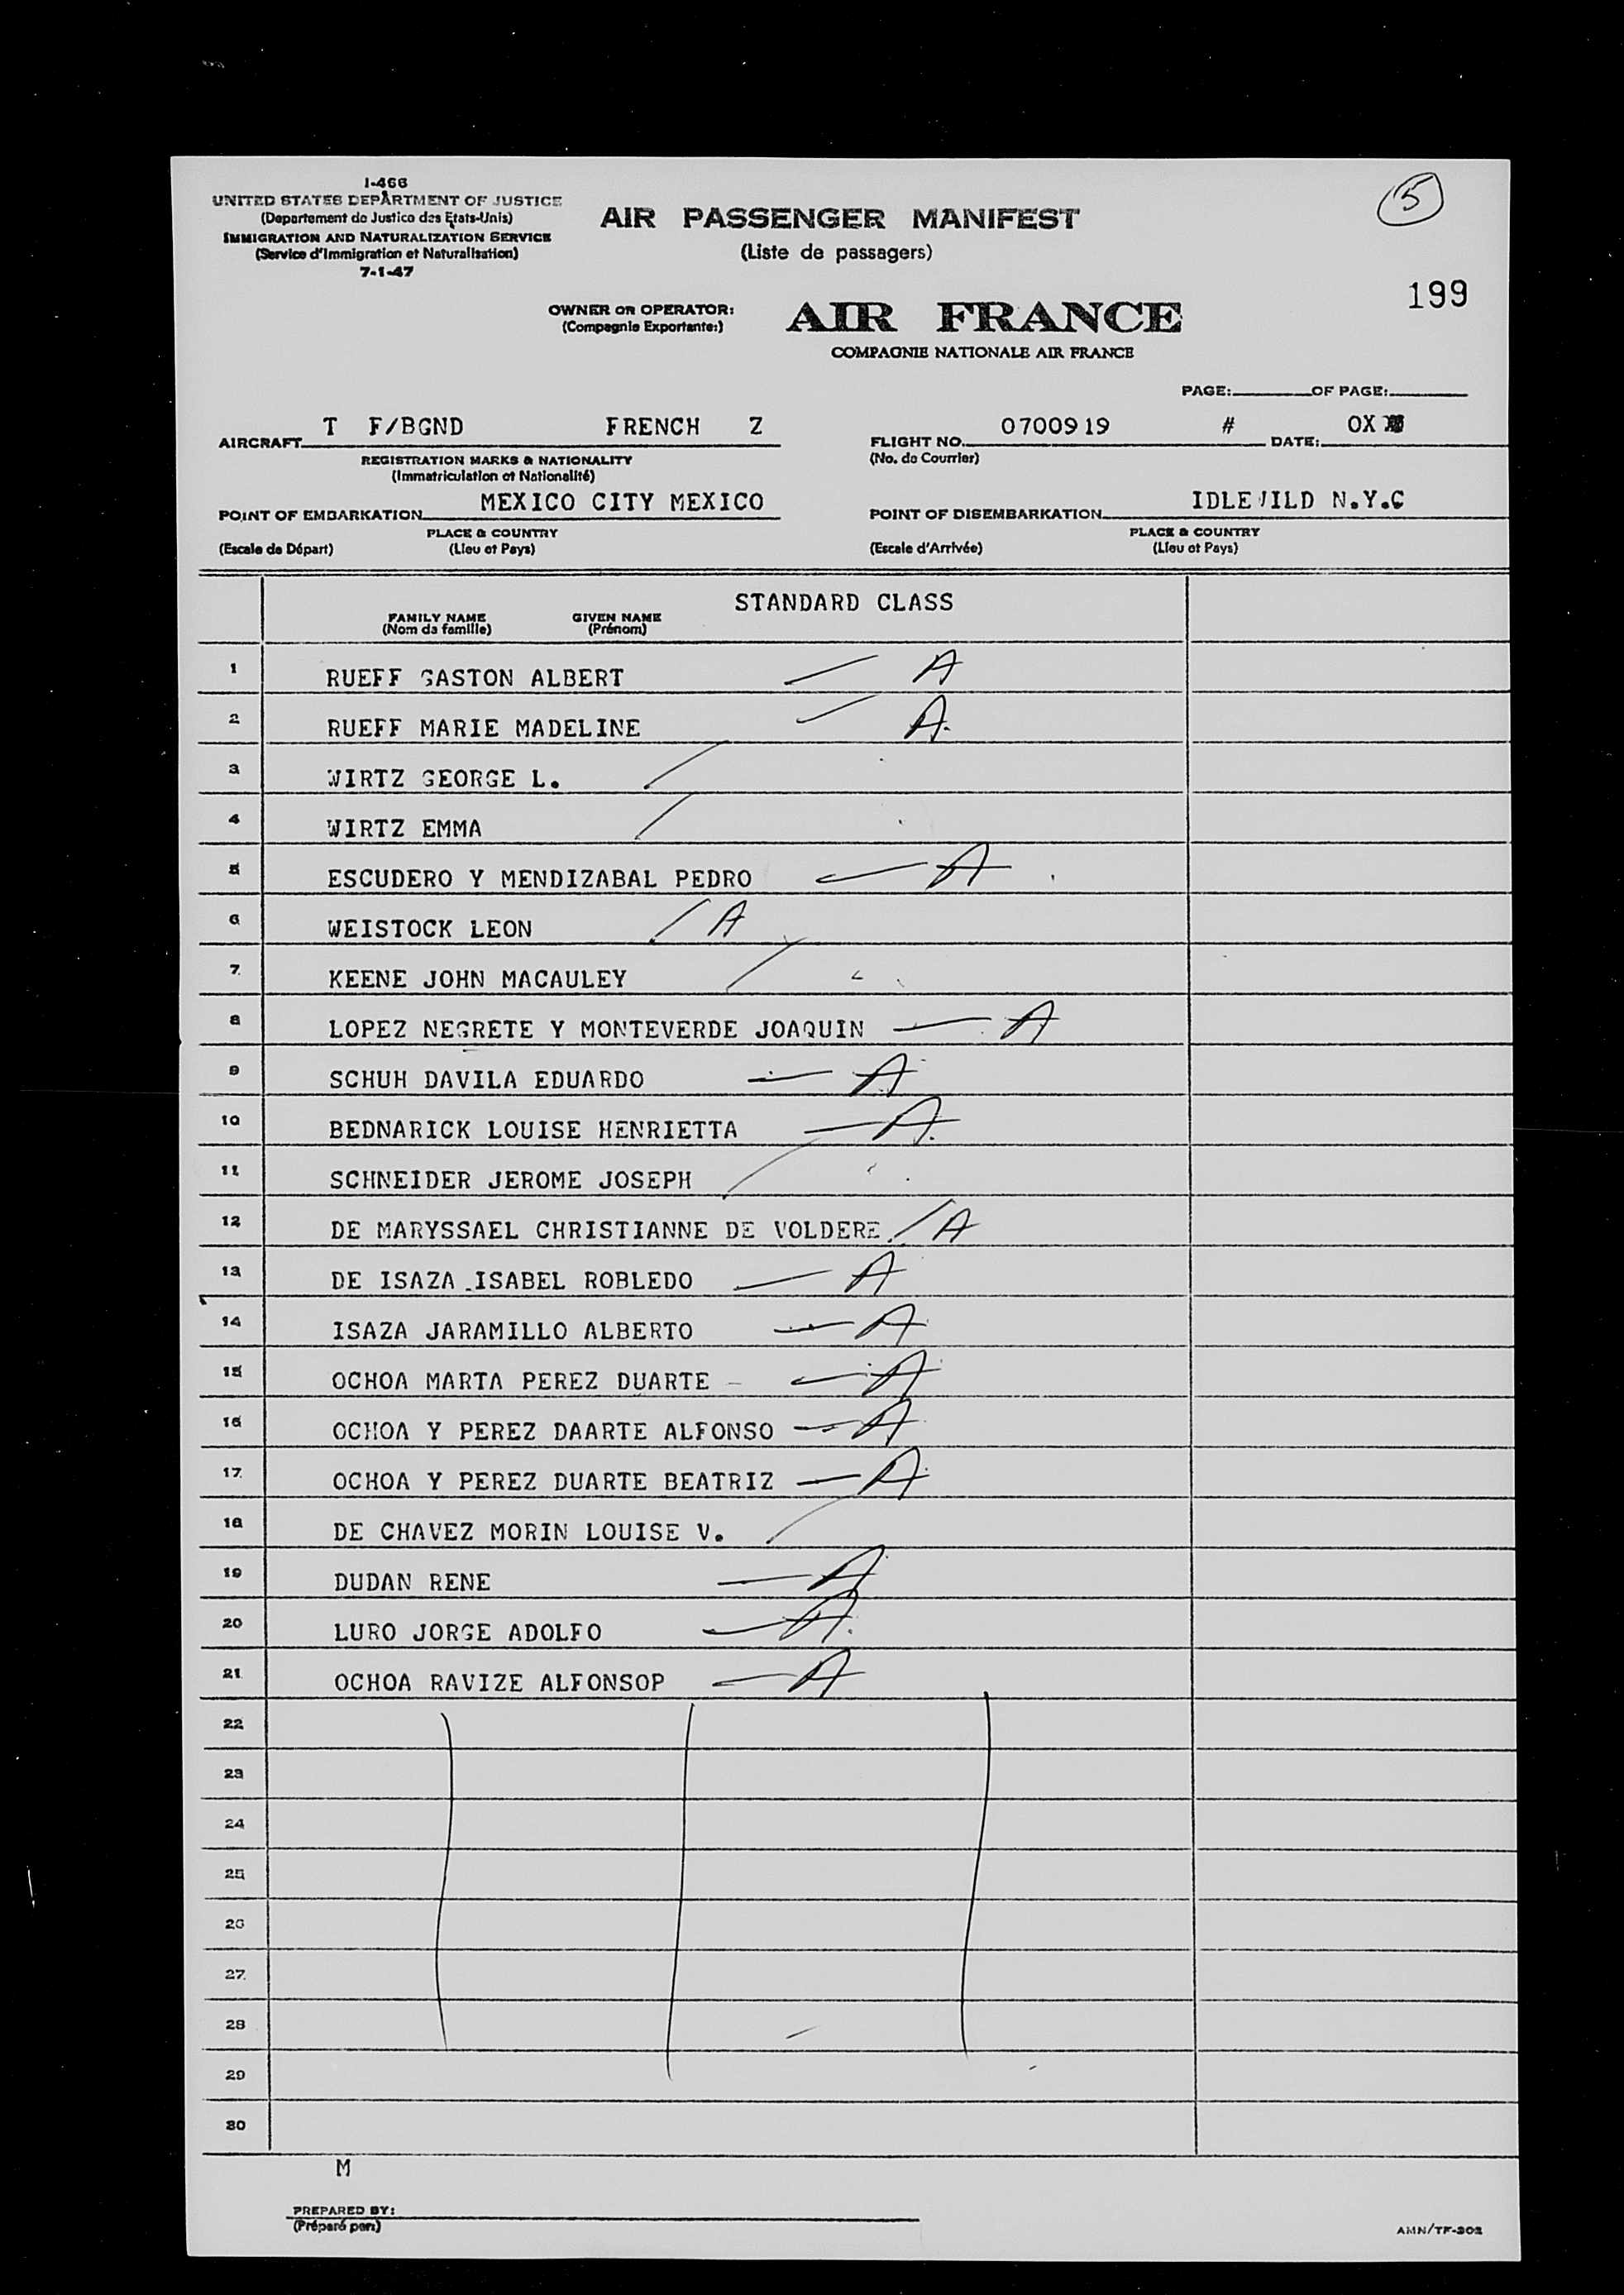 I-466
UNITED STATES DEPARTMENT OF JUSTICE
(Departement de Justice des Etats-Unis)
IMMIGRATION AND NATURALIZATION SERVICE
(Service d'Immigration et Naturalisation)
7-1-47
AIR PASSENGER MANIFEST
(Liste de passagers)
5
199
OWNER OR OPERATOR:
(Compagnie Exportante:)
AIR FRANCE
COMPAGNIE NATIONALE AIR FRANCE
PAGE: OF PAGE:
AIRCRAFT T F/BGND FRENCH Z
REGISTRATION MARKS & NATIONALITY
(Immatriculation et Nationalité)
FLIGHT NO. 0700919 # DATE: OX
(No. de Courrier)
POINT OF EMBARKATION MEXICO CITY MEXICO
PLACE & COUNTRY
(Escale de Départ) (Lieu et Pays)
POINT OF DISEMBARKATION IDLEWILD N.Y.C
PLACE & COUNTRY
(Escale d'Arrivée) (Lieu et Pays)
STANDARD CLASS
FAMILY NAME GIVEN NAME
(Nom de famille) (Prénom)
1 RUEFF GASTON ALBERT A
2 RUEFF MARIE MADELINE A.
3 WIRTZ GEORGE L.
4 WIRTZ EMMA
5 ESCUDERO Y MENDIZABAL PEDRO A
6 WEISTOCK LEON A
7 KEENE JOHN MACAULEY
8 LOPEZ NEGRETE Y MONTEVERDE JOAQUIN A
9 SCHUH DAVILA EDUARDO A
10 BEDNARICK LOUISE HENRIETTA A
11 SCHNEIDER JEROME JOSEPH
12 DE MARYSSAEL CHRISTIANNE DE VOLDERE A
13 DE ISAZA ISABEL ROBLEDO A
14 ISAZA JARAMILLO ALBERTO A
15 OCHOA MARTA PEREZ DUARTE A
16 OCHOA Y PEREZ DAARTE ALFONSO A
17 OCHOA Y PEREZ DUARTE BEATRIZ A
18 DE CHAVEZ MORIN LOUISE V.
19 DUDAN RENE A
20 LURO JORGE ADOLFO A
21 OCHOA RAVIZE ALFONSOP A
22
23
24
25
26
27
28
29
30
M
PREPARED BY:
(Préparé par:)
AMN/TF-302